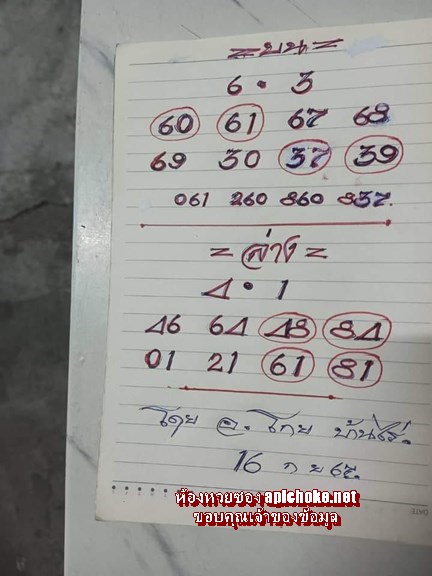 =บน=
6 • 3
60 61 67 68
69 30 37 39
061 260 860 837.
=ล่าง=
4 • 1
46 64 48 84
01 21 61 81
โดย อ. โทย บ้านไร่.
16 ก ย 67.
ห้องหวยซอง apichoke.net
ขอบคุณเจ้าของข้อมูล